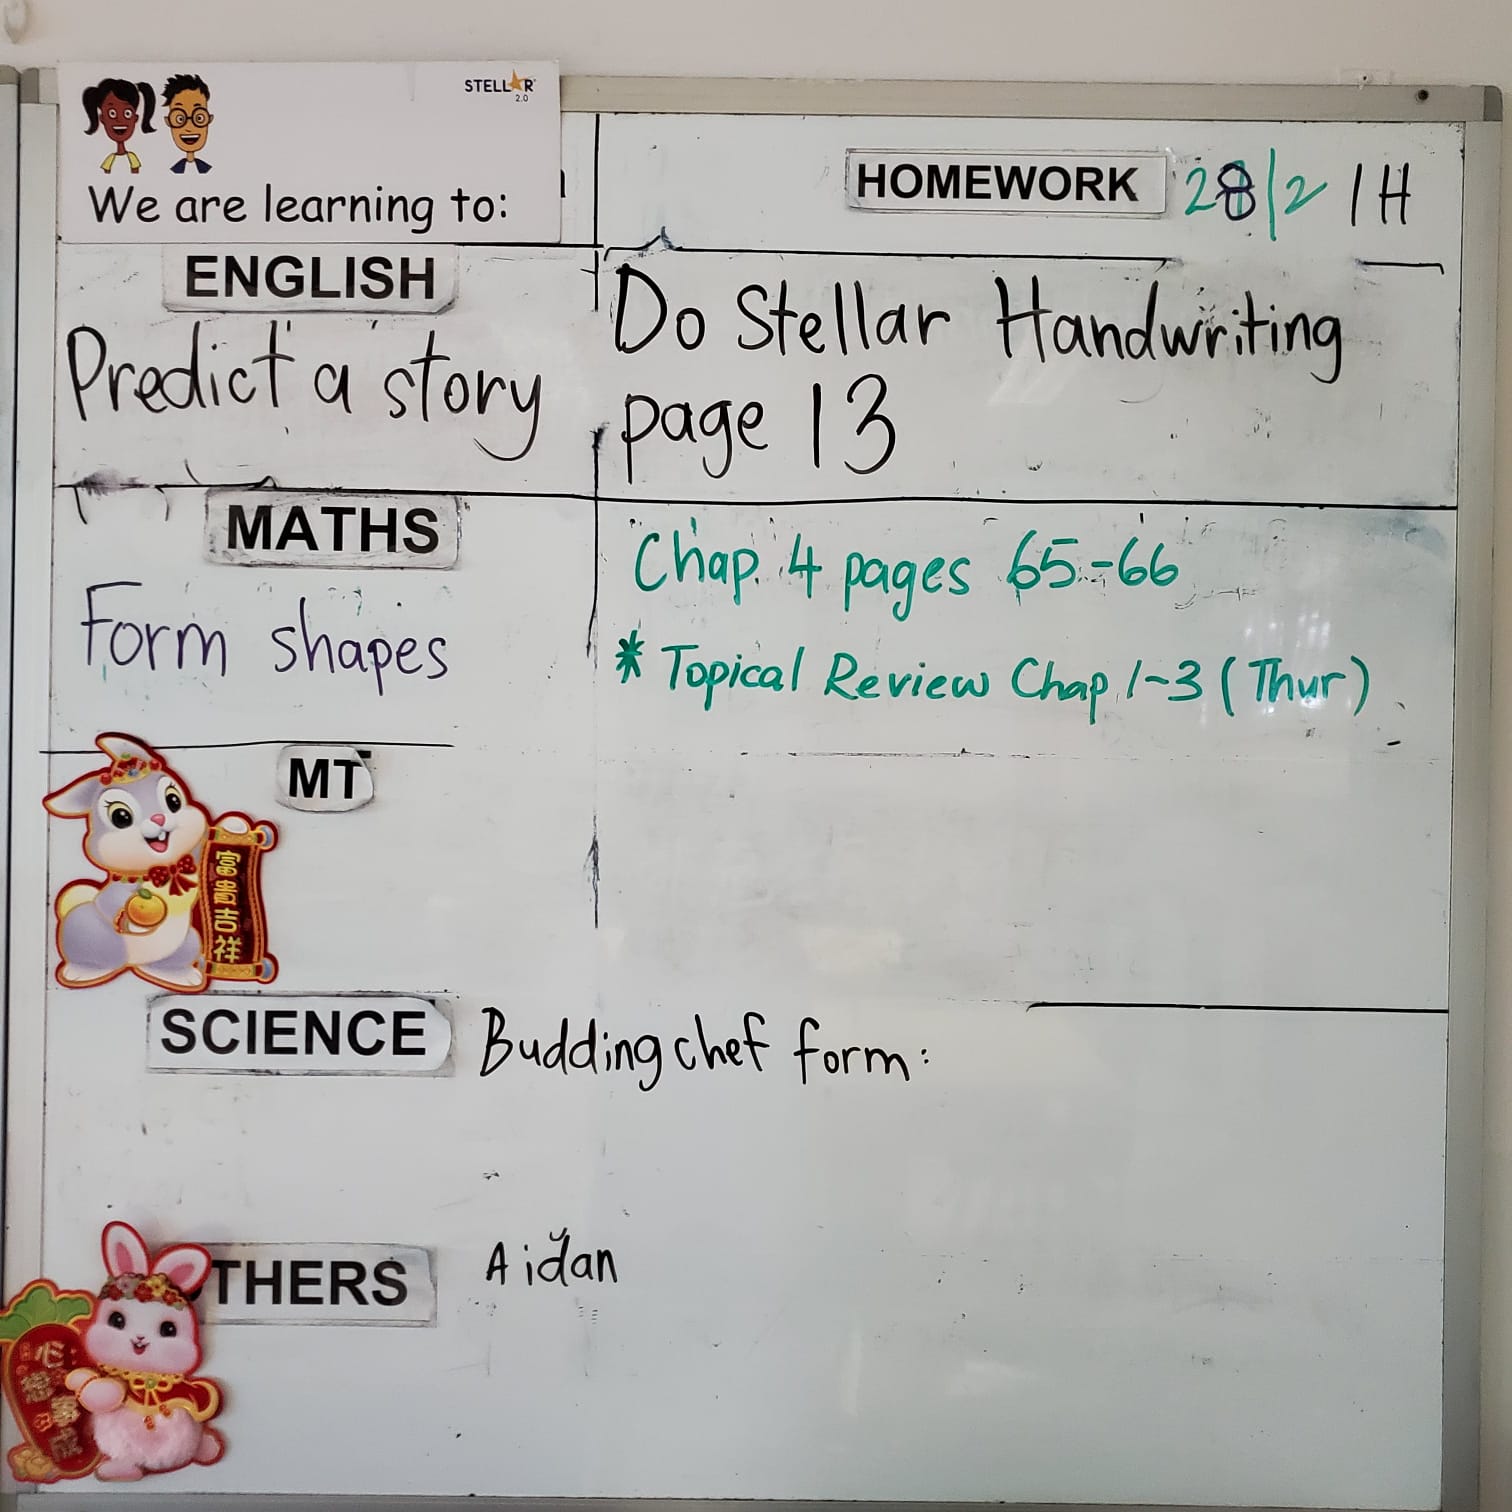 STELLAR
2.0
We are learning to:
HOMEWORK 28/2 1H
ENGLISH
Predict a story
Do Stellar Handwriting
page 13
MATHS
Form shapes
Chap 4 pages 65-66
* Topical Review Chap 1~3 (Thur)
MT
富貴吉祥
SCIENCE
Budding chef form:
THERS
Aidan
心